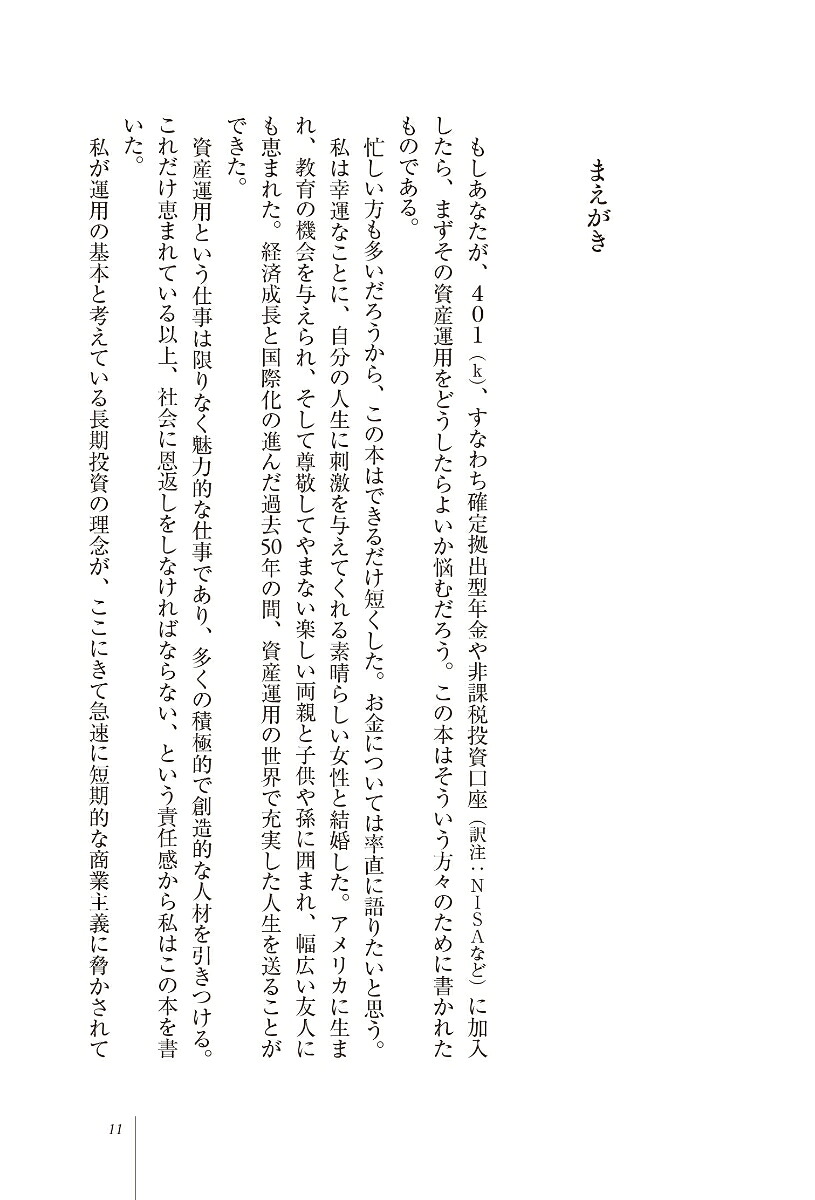 まえがき
もしあなたが、401（k）、すなわち確定拠出型年金や非課税投資口座（訳注：NISAなど）に加入
したら、まずその資産運用をどうしたらよいか悩むだろう。この本はそういう方々のために書かれた
ものである。
忙しい方も多いだろうから、この本はできるだけ短くした。お金については率直に語りたいと思う。
私は幸運なことに、自分の人生に刺激を与えてくれる素晴らしい女性と結婚した。アメリカに生ま
れ、教育の機会を与えられ、そして尊敬してやまない楽しい両親と子供や孫に囲まれ、幅広い友人に
も恵まれた。経済成長と国際化の進んだ過去50年の間、資産運用の世界で充実した人生を送ることが
できた。
資産運用という仕事は限りなく魅力的な仕事であり、多くの積極的で創造的な人材を引きつける。
これだけ恵まれている以上、社会に恩返しをしなければならない、という責任感から私はこの本を書
いた。
私が運用の基本と考えている長期投資の理念が、ここにきて急速に短期的な商業主義に脅かされて
11